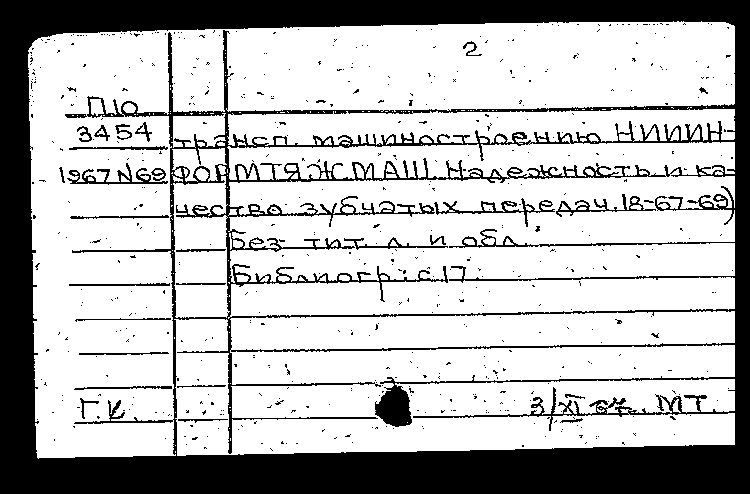 2
П10
3454 трансп. машиностроению НИИИН-
1967 N69 ФОРМТЯЖМАШ. Надежность и ка-
чество зубчатых передач. 18-67-69)
Без тит. л. и обл.
Библиогр.: с. 17.
Г.К. 3/XI 67. МТ.